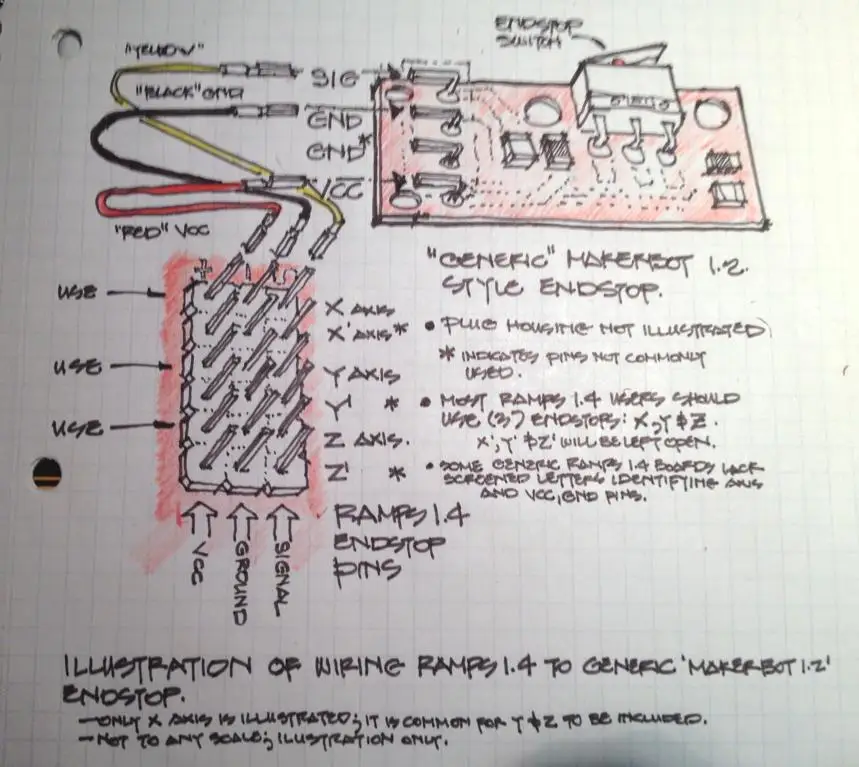 ENDSTOP
SWITCH
"YELLOW"
SIG
"BLACK" GND
GND
GND*
VCC
"RED" VCC
"GENERIC" MAKERBOT 1.2
STYLE ENDSTOP.
+ - S
USE
X AXIS
X' AXIS*
• PLUG HOUSING NOT ILLUSTRATED
* INDICATES PINS NOT COMMONLY
USED.
USE
Y AXIS
Y' *
• MOST RAMPS 1.4 USERS SHOULD
USE (3) ENDSTOPS: X, Y & Z.
X', Y' & Z' WILL BE LEFT OPEN.
USE
Z AXIS.
Z' *
• SOME GENERIC RAMPS 1.4 BOARDS LACK
SCREENED LETTERS IDENTIFYING AXIS
AND VCC, GND PINS.
VCC
GROUND
SIGNAL
RAMPS 1.4
ENDSTOP
PINS
ILLUSTRATION OF WIRING RAMPS 1.4 TO GENERIC 'MAKERBOT 1.2'
ENDSTOP.
- ONLY X AXIS IS ILLUSTRATED; IT IS COMMON FOR Y & Z TO BE INCLUDED.
- NOT TO ANY SCALE; ILLUSTRATION ONLY.